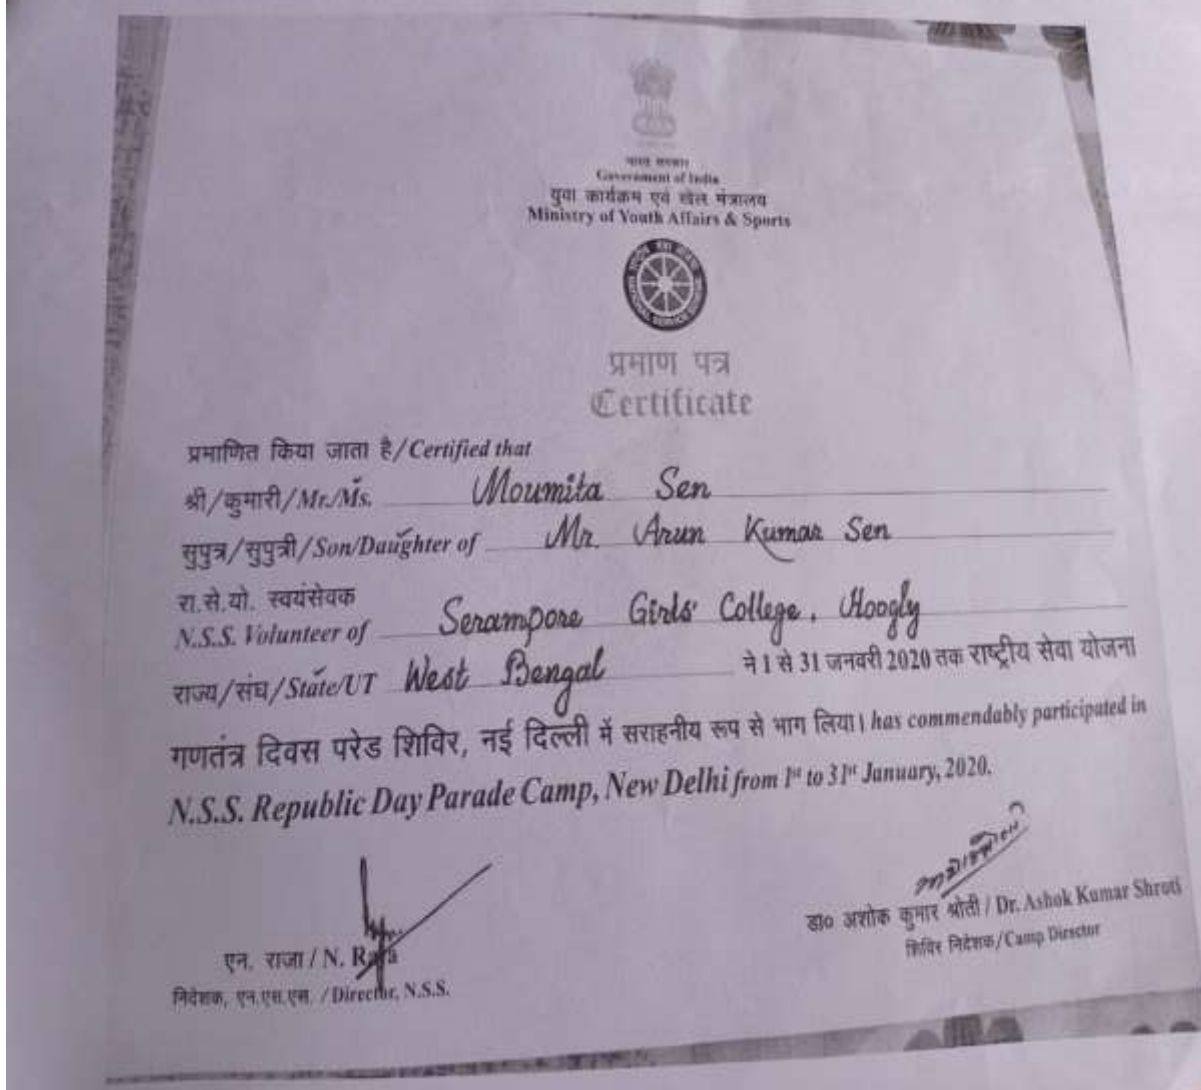 भारत सरकार
Government of India
युवा कार्यक्रम एवं खेल मंत्रालय
Ministry of Youth Affairs & Sports
प्रमाण पत्र
Certificate
प्रमाणित किया जाता है/Certified that
श्री/कुमारी/Mr./Ms. Moumita Sen
सुपुत्र/सुपुत्री/Son/Daughter of Mr. Arun Kumar Sen
रा.से.यो. स्वयंसेवक
N.S.S. Volunteer of Serampore Girls' College, Hoogly
राज्य/संघ/State/UT West Bengal ने 1 से 31 जनवरी 2020 तक राष्ट्रीय सेवा योजना
गणतंत्र दिवस परेड शिविर, नई दिल्ली में सराहनीय रूप से भाग लिया। has commendably participated in
N.S.S. Republic Day Parade Camp, New Delhi from 1st to 31st January, 2020.
एन. राजा / N. Raja
निदेशक, एन.एस.एस. / Director, N.S.S.
डा० अशोक कुमार श्रोती / Dr. Ashok Kumar Shroti
शिविर निदेशक/Camp Director